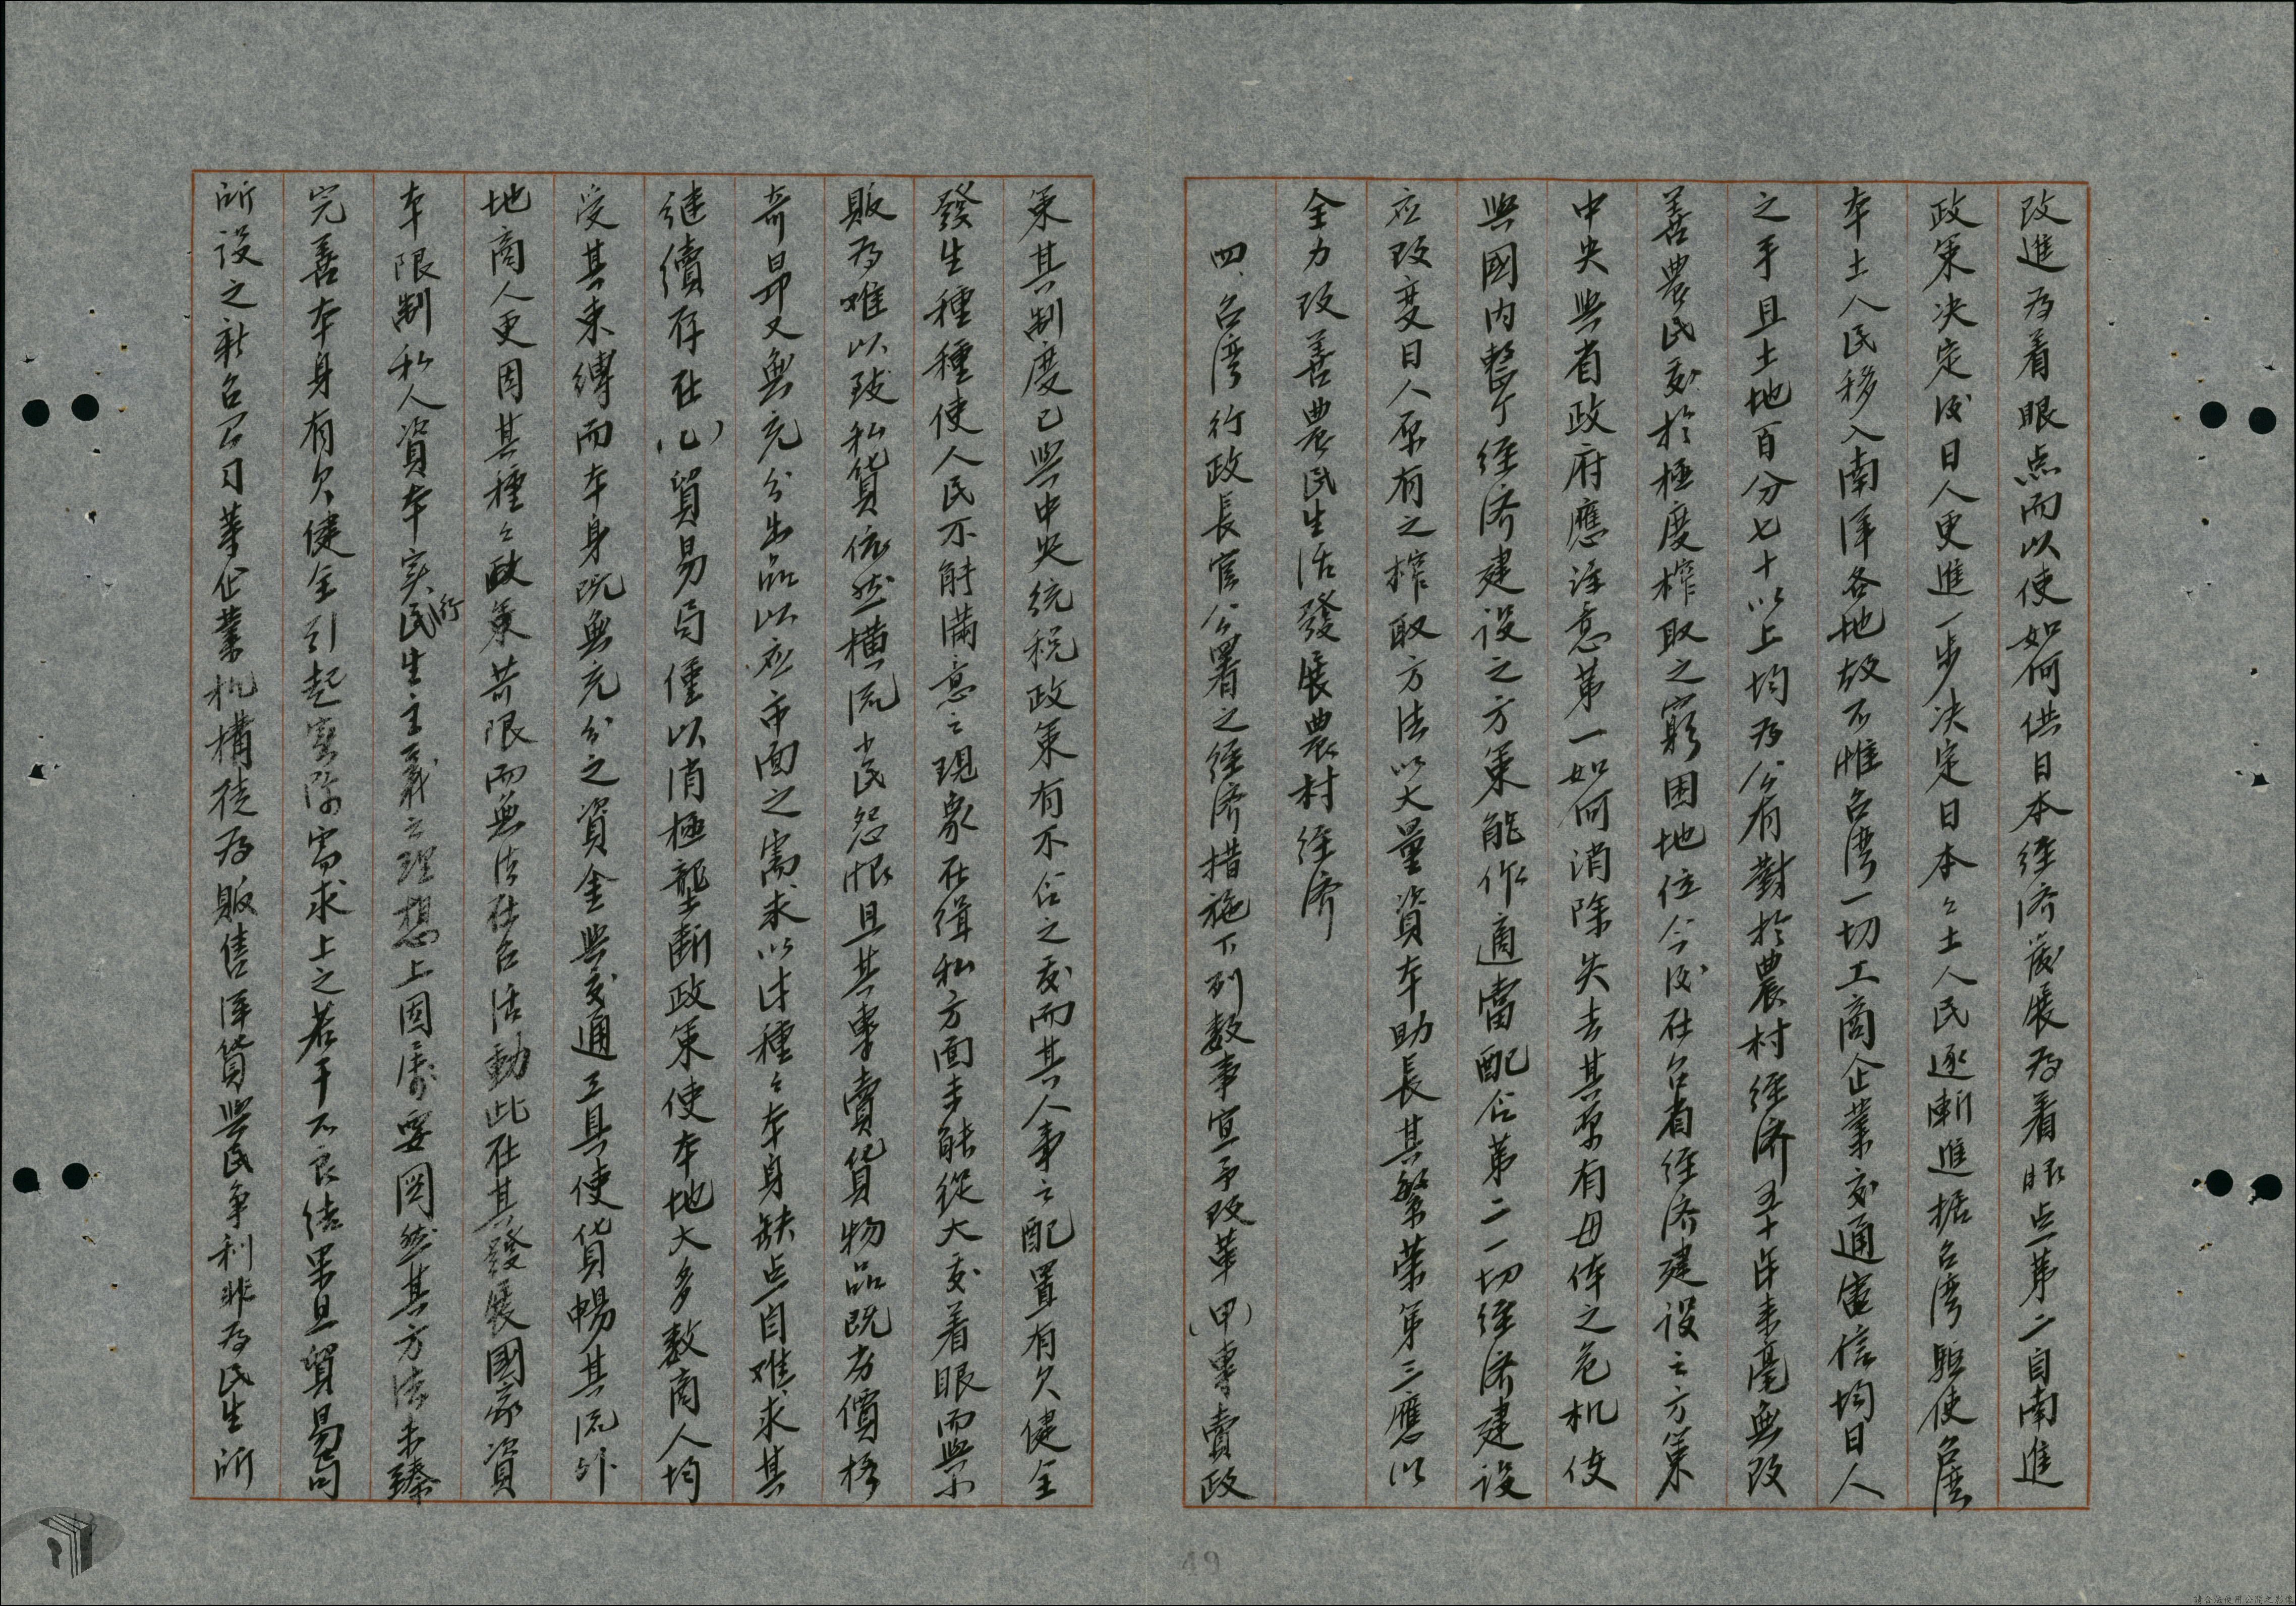 改進為着眼点而以使如何供日本经济发展為着眼点第二自南進
政策决定後日人更進一步决定日本々土人民逐漸進据台湾驅使台湾
本土人民移入南洋各地故不惟台湾一切工商企業交通電信均日人
之手且土地百分七十以上均為公有對於農村经济五十年来毫無改
善農民处於極度榨取之窮困地位今後在台省经济建设之方策
中央與省政府應注意第一如何消除失去其原有母体之危机使
與國内整个经济建设之方策能作適當配合第二一切经济建设
应改变日人原有之榨取方法以大量資本助長其繁荣第三應以
全力改善農民生活發展農村经济
四、台湾行政長官公署之经济措施下列数事宜予改革(甲)専賣政
策其制度已與中央统税政策有不合之处而其人事之配置有欠健全
發生種種使人民不能满意之現象在缉私方面未能從大处着眼而與小
販為难以致私貨依然横流小民怨恨且其専賣貨物品既劣價格
奇昂又無充分出品以应市面之需求以此種々本身缺点自难求其
继續存在(乙)貿易局僅以消極壟断政策使本地大多数商人均
受其束縛而本身既無充分之資金與交通工具使貨暢其流外
地商人更因其種々政策苛限而無法在台活動此在其發展國家資
本限制私人資本实行民生主義之理想上固属要図然其方法未臻
完善本身有欠健全引起实际需求上之若干不良结果且貿易局
所设之新台公司等企業机構徒為販售洋貨與民争利非為民生所
49